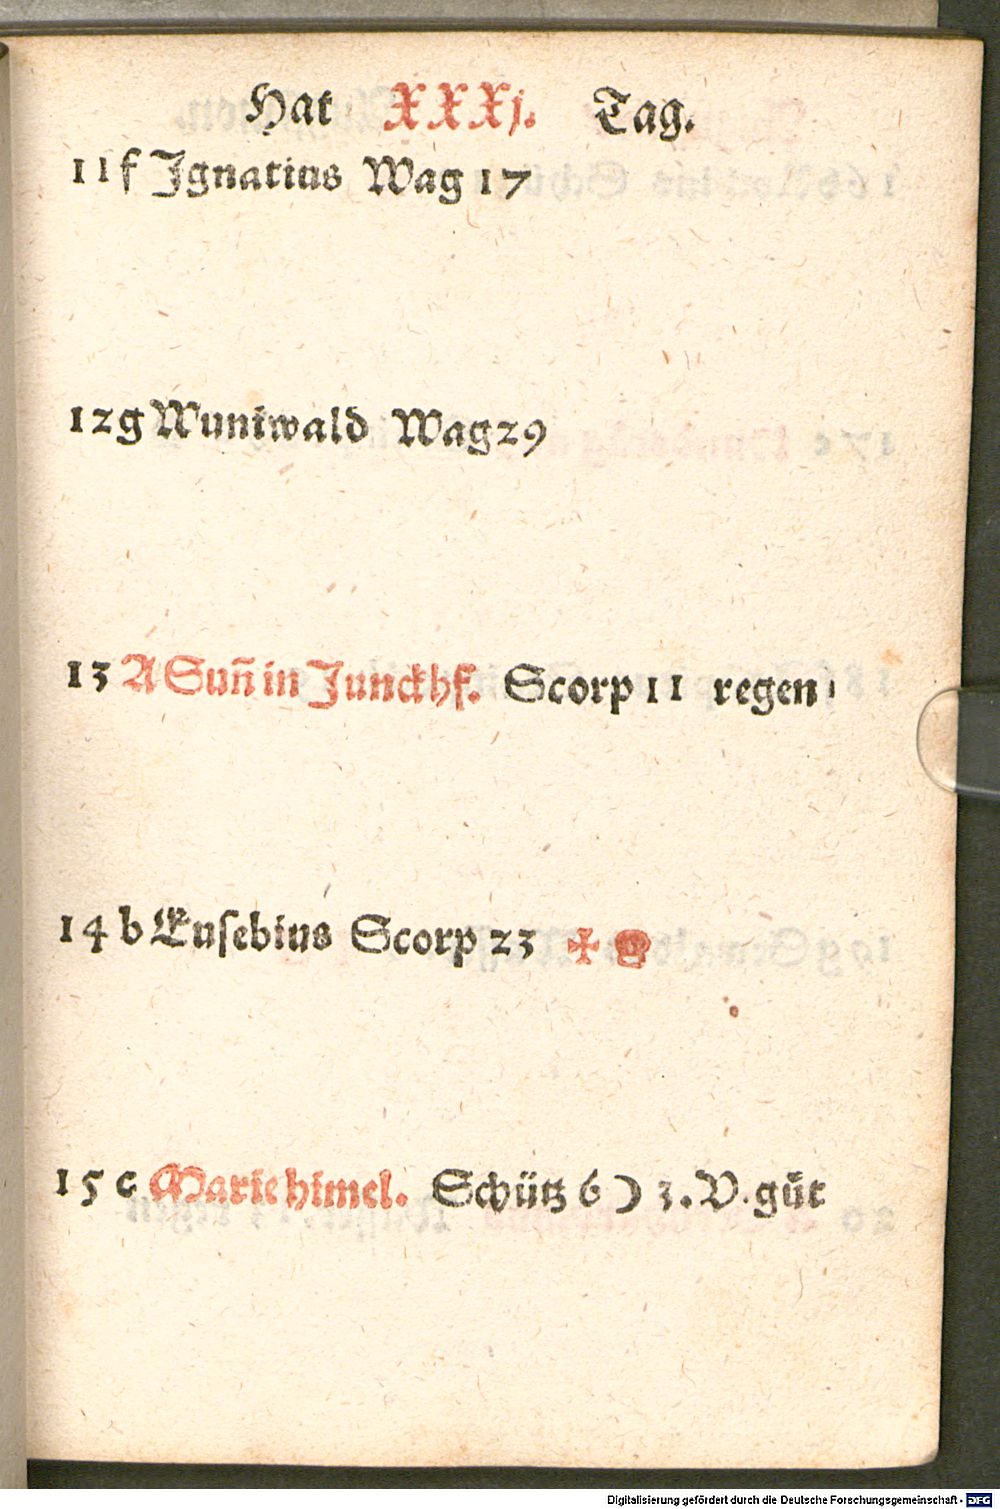 Hat XXXj. Tag.
11 f Ignatius Wag 17
12 g Muntwald Wag 29
13 A Suñ in Junckhf. Scorp 11 regen
14 b Eusebius Scorp 23 ✠
15 c Marie himel. Schütz 6 ☽ 3. V. gůt
Digitalisierung gefördert durch die Deutsche Forschungsgemeinschaft - DFG